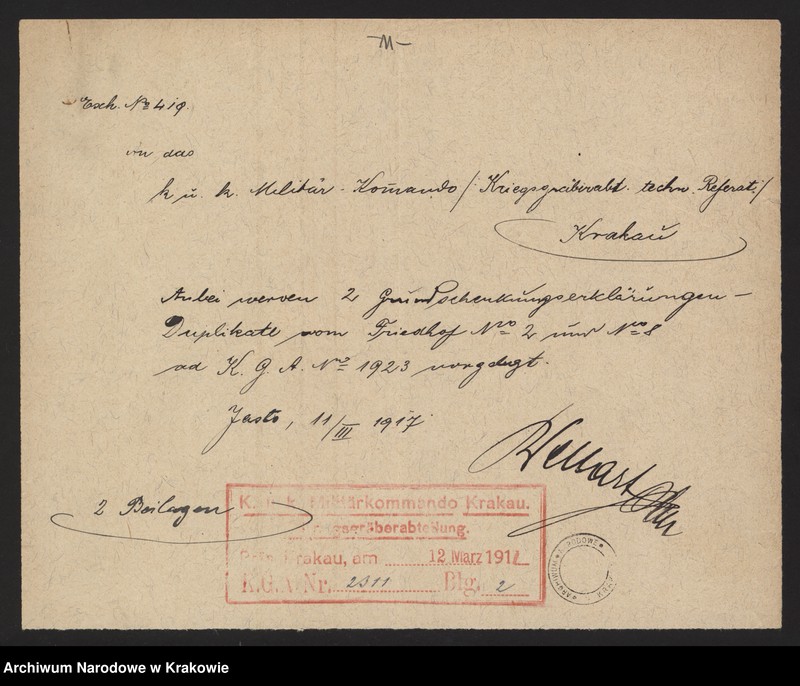 Exh. No 419.
an das
k. u. k. Militär-Kom̄ando /: Kriegsgräberabt. techn. Referat :/
Krakau
Anbei werden 2 Grundschenkungserklärungen –
Duplikate vom Friedhof Nro 2 und Nro 8
ad K. G. A. Nro 1923 vorgelegt.
Jasło, 11/III 1917.
2 Beilagen
K. u. k. Militärkommando Krakau.
Kriegsgräberabteilung.
Präs. Krakau, am 12 März 1917
K.G.A. Nr. 2311 Blg. 2
ARCHIWUM NARODOWE
Archiwum Narodowe w Krakowie